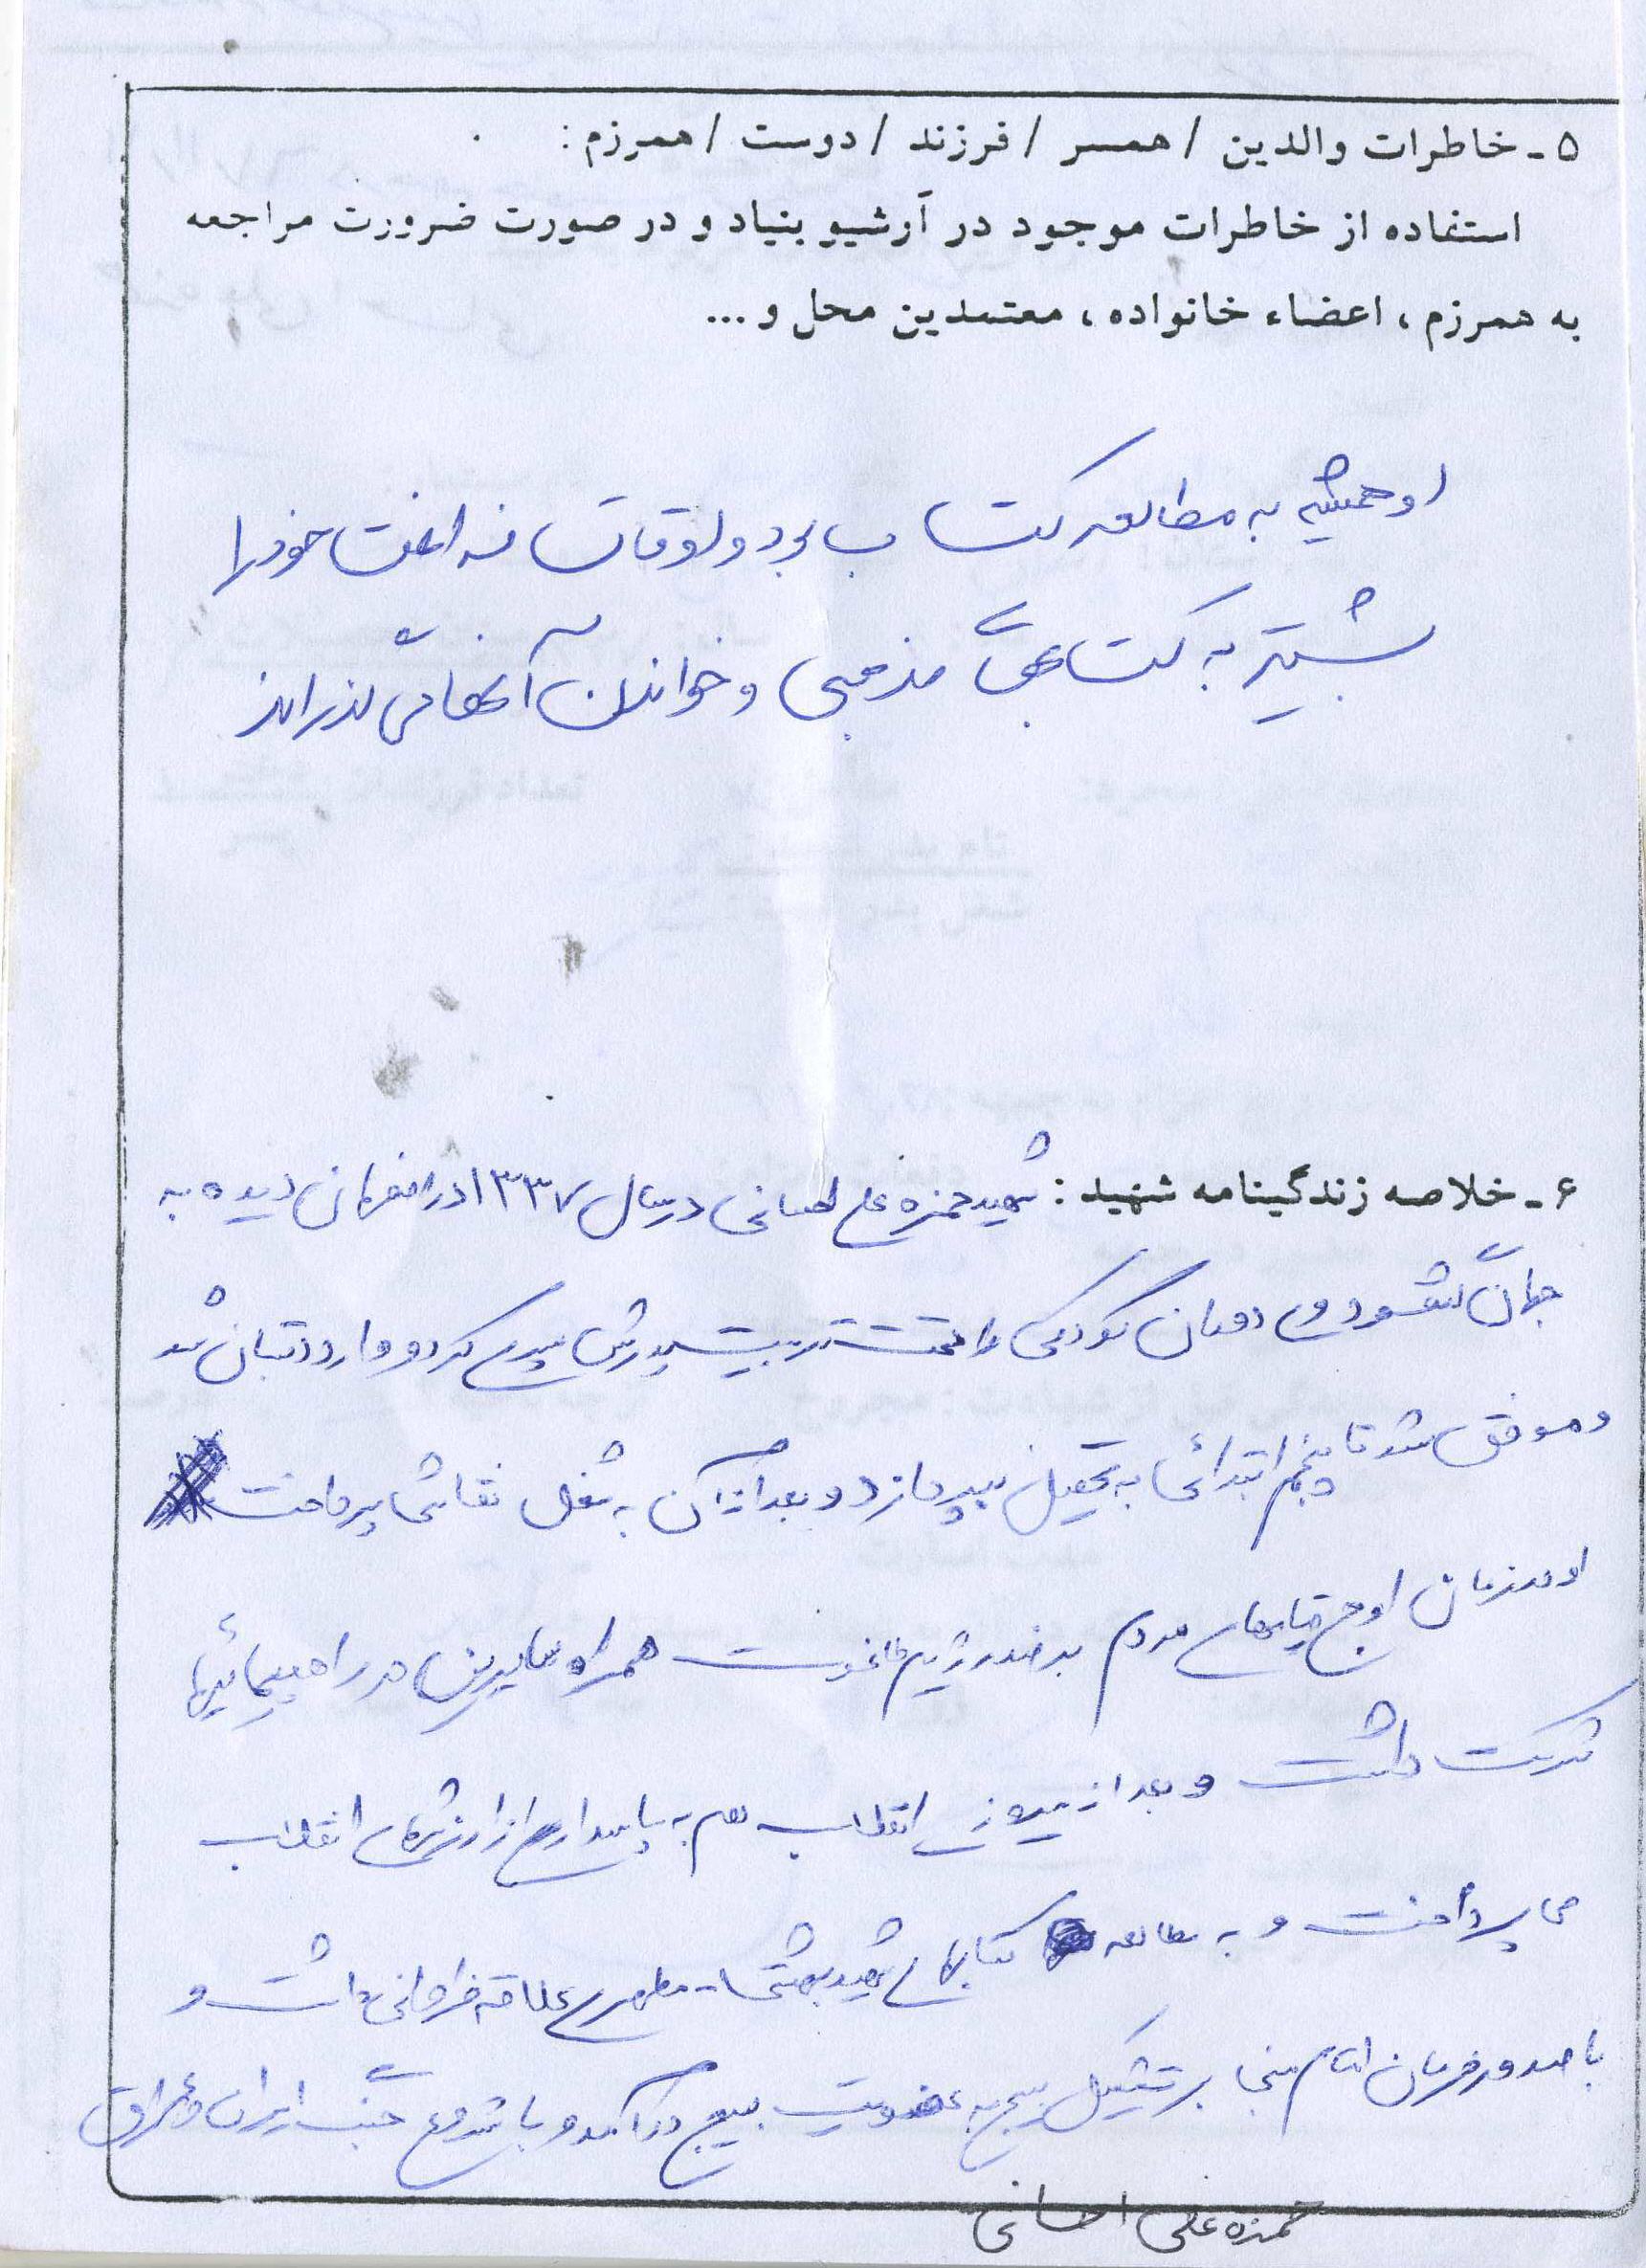 ۵ـ خاطرات والدین / همسر / فرزند / دوست / همرزم :
استفاده از خاطرات موجود در آرشیو بنیاد و در صورت ضرورت مراجعه
به همرزم ، اعضاء خانواده ، معتمدین محل و ...
او همیشه به مطالعه کتاب بود و اوقات فراغت خود را
بیشتر به کتابهای مذهبی و خواندن آنها می گذراند
۶ـ خلاصه زندگینامه شهید : شهید حمزه علی احسانی در سال ۱۳۳۷ در دیده به
جهان گشود وی دوران کودکی را تحت تربیت پدرش سپری کرد و وارد دبستان شد
و موفق شد تا پنجم ابتدائی به تحصیل بپردازد و بعد از آن به شغل نقاشی پرداخت
او در زمان اوج قیامهای مردم بر ضد رژیم طاغوت همراه سایرین در راهپیمائیها
شرکت داشت و بعد از پیروزی انقلاب هم به پاسداری از ارزشهای انقلاب
می پرداخت و به مطالعه کتابهای شهید بهشتی - مطهری علاقه فراوانی داشت و
با صدور فرمان امام مبنی بر تشکیل بسیج به عضویت بسیج درآمد و با شروع جنگ ایران و عراق
حمزه علی احسانی